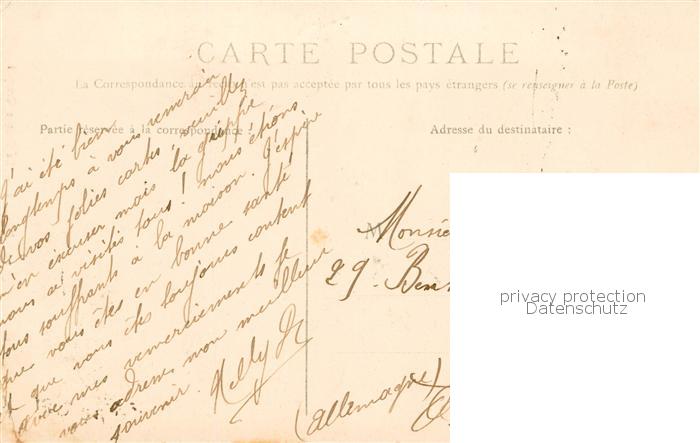 CARTE POSTALE
La Correspondance au recto n'est pas acceptée par tous les pays étrangers (se renseigner à la Poste)
Partie réservée à la correspondance :
Adresse du destinataire :
J'ai été bien
longtemps à vous remercier
de vos jolies cartes veuillez
m'en excuser mais la grippe
nous a visités tous ! nous étions
tous souffrants à la maison. J'espère
que vous êtes en bonne santé
et que vous êtes toujours content
avec mes remerciements je
vous adresse mon meilleur
souvenir. Nelly R
Monsie
29. Ben
(Allemagne)
privacy protection
Datenschutz